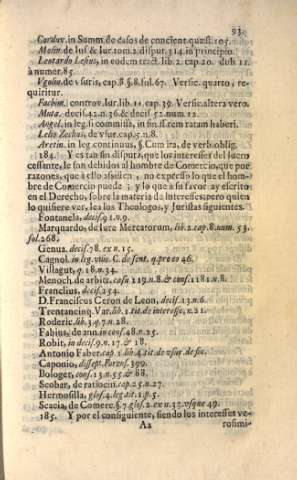 93.
Cardau. in Summ. de casos de concient. quæst. 105.
Molin. de Ius & Iur. tom. 2. dispur. 314. in principio.
Leonardo Lesius, in eodem tract. lib. 2. cap. 20. dub. 11.
à numer. 85.
Vgolin. de vsuris, cap. 5. §. 8. fol. 67. Versic. quarto, re-
quiritur.
Fachim. controv. Iur. lib. 11. cap. 39. Versic. altera vero.
Muta. decis. 42. n. 36. & decis. 52. num. 12.
Angel. in leg. si commissa, in fin. ff. rem ratam haberi.
Lelio Zechus, de vsur. cap. 5. n. 8.
Aretin. in leg. continuus, §. Cum ita, de verb. oblig.
184. Y es tan sin disputa, que los interesses del lucro
cessante, le son debidos al hombre de Comercio, que por
razones, que a ello assisten, no expresso lo que el hom-
bre de Comercio puede; y lo que a su favor ay escrito
en el Derecho, sobre la materia de Interesses; pero quien
lo quisiere ver, lea los Theologos, y Juristas siguientes.
Fontanela, decis. 91. n. 9.
Marquardo, de Iure Mercatorum, lib. 2. cap. 8. num. 53.
fol. 268.
Genua. decis. 78. ex n. 15.
Cagnol. in leg. viii. C. de sent. q. pro eo 46.
Villagut, q. 18. n. 34.
Menoch. de arbitr. casu 119. n. 8. & cons. 1181. n. 8.
Franclius, decis. 254.
D. Franciscus Ceron de Leon, decis. 13. n. 6.
Trentancinq. Var. lib. 1. tit. de interesse, n. 21.
Roderic. lib. 3. q. 7. n. 28.
Fabius, de ann. in cons. 48. n. 25.
Robit, in decis. 9. n. 17. & 18.
Antonio Faber, cap. 1. lib. 4. tit. de vsur. defic.
Caponio, discept. Forens. 399.
Bologer, cons. 13. n. 55. & 68.
Scobar, de ratiocin. cap. 25. n. 27.
Hermosilla, glos. 4. leg. tit. 1. p. 5.
Scacia, de Comerc. §. 7. glos. 2. ex n. 32. vsque 49.
185. Y por el consiguiente, siendo los interesses ve-
Aa rosimi-